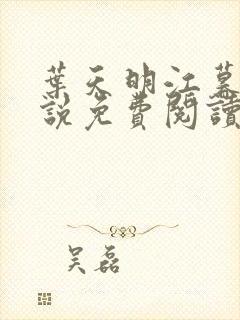 葉天明江暮
說免費閱讀
吳磊